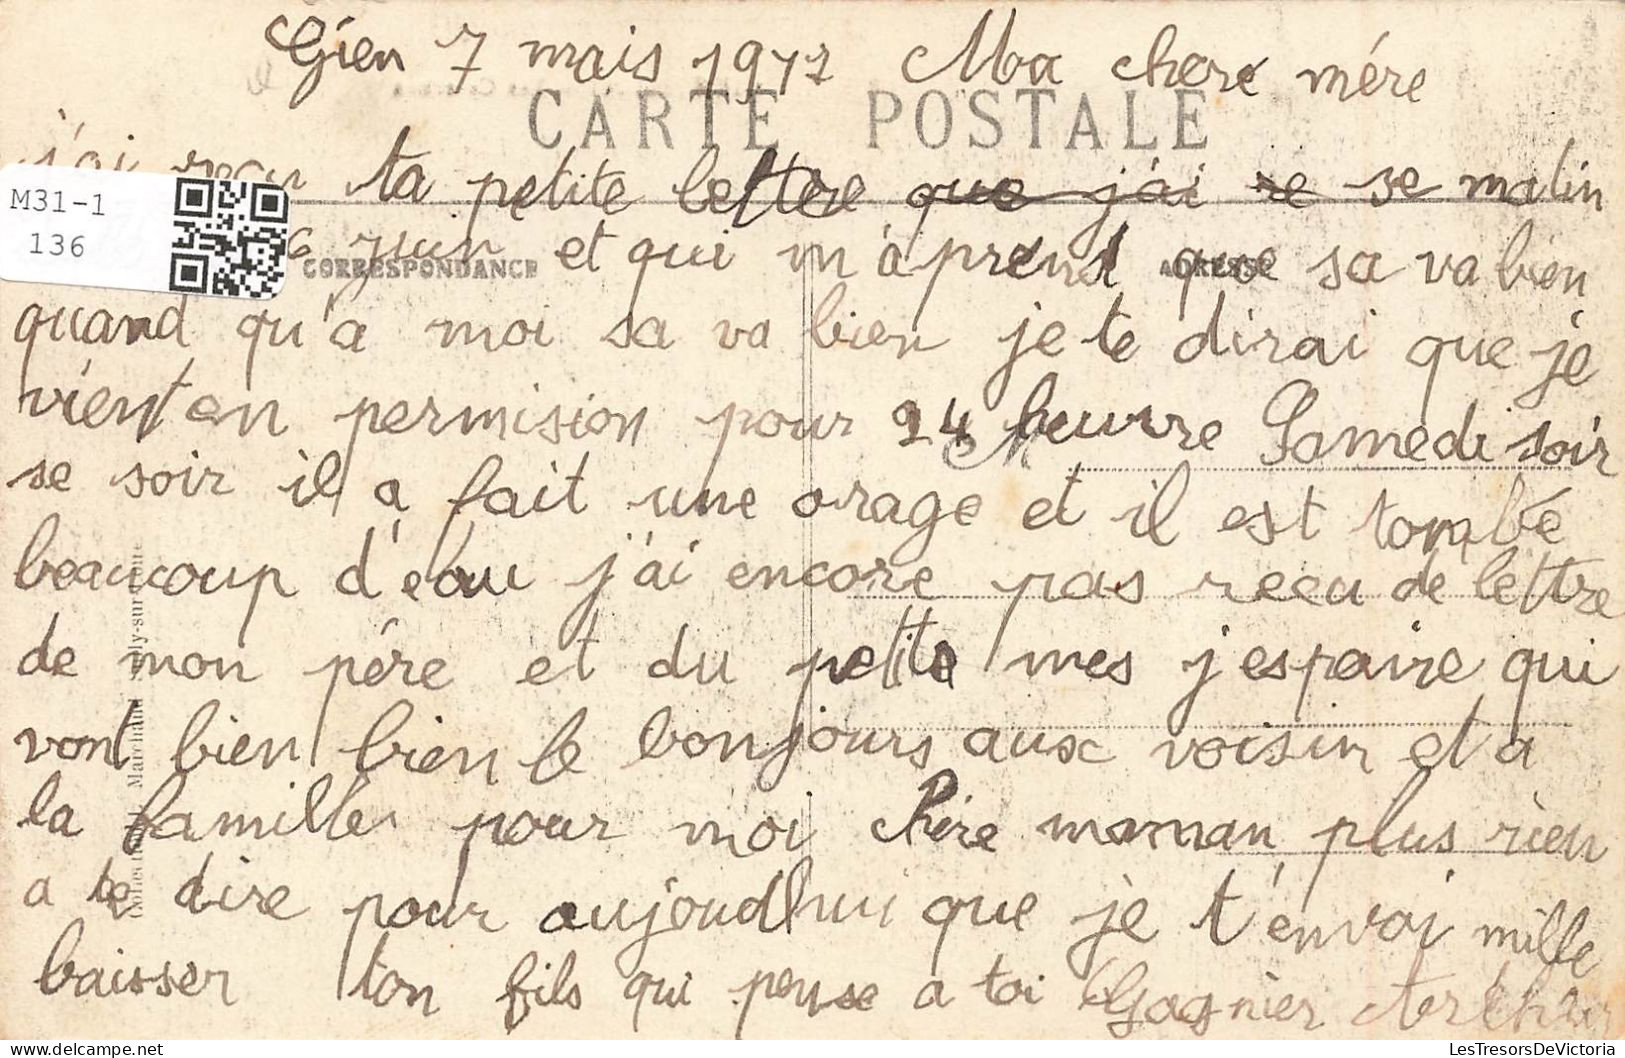 Gien 7 mais 1912 Ma chere mére
CARTE POSTALE
j'ai reçu ta petite lettre que j'ai re se matin
M31-1
136
6 juin et qui m'aprend que sa va bien
CORRESPONDANCE
ADRESSE
quand qu'a moi sa va bien je te dirai que je
vient en permision pour 24 heurre Samedi soir
se soir il a fait une orage et il est tombé
beaucoup d'eau j'ai encore pas recu de lettre
de mon pére et du petite mes j'espaire qui
vont bien bien le bonjours aux voisin et a
la famille pour moi chére maman plus rien
a te dire pour aujoudhui que je t'envoi mille
baisser ton fils qui pense a toi Gagnier Arthur
LesTresorsDeVictoria.com